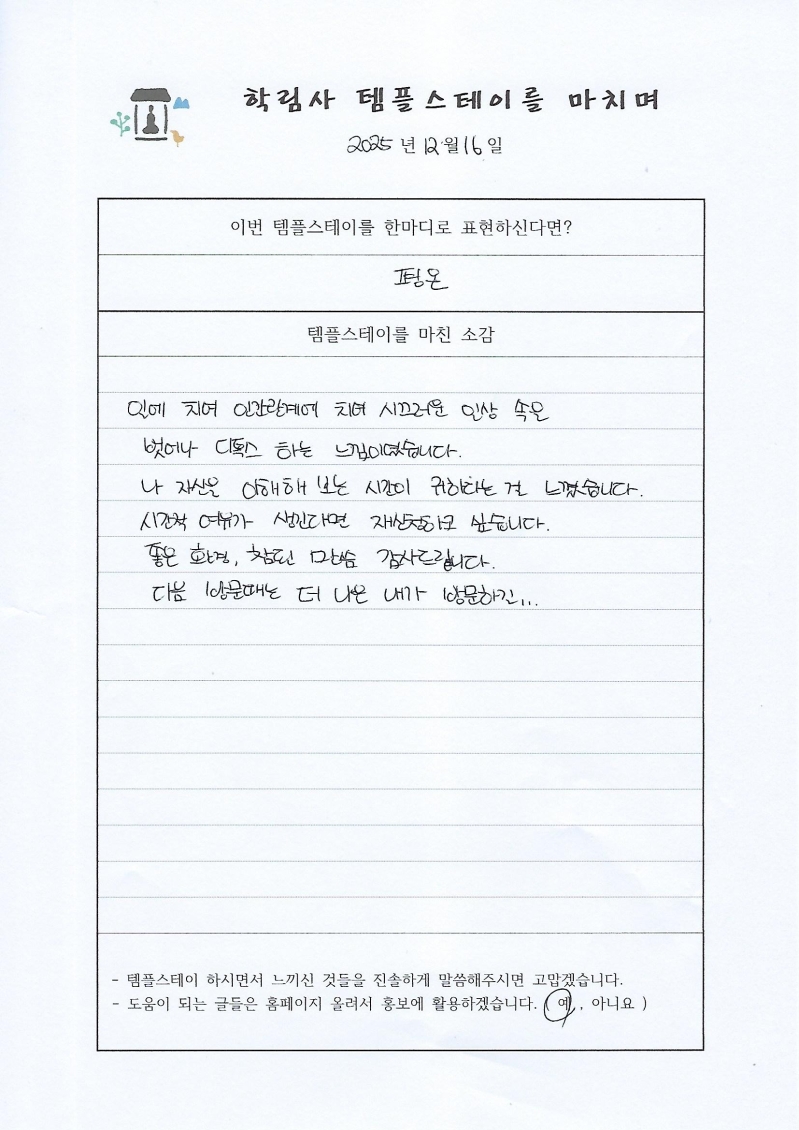 학림사 템플스테이를 마치며
2025 년 12 월 16 일
이번 템플스테이를 한마디로 표현하신다면?
평온
템플스테이를 마친 소감
일에 치여 인간관계에 치여 시끄러운 일상 속을
벗어나 디톡스 하는 느낌이였습니다.
나 자신을 이해해 보는 시간이 귀하다는 걸 느꼈습니다.
시간적 여유가 생긴다면 재신청하고 싶습니다.
좋은 환경, 참된 말씀 감사드립니다.
다음 방문때는 더 나은 내가 방문하길...
- 템플스테이 하시면서 느끼신 것들을 진솔하게 말씀해주시면 고맙겠습니다.
- 도움이 되는 글들은 홈페이지 올려서 홍보에 활용하겠습니다. ( 예 , 아니요 )